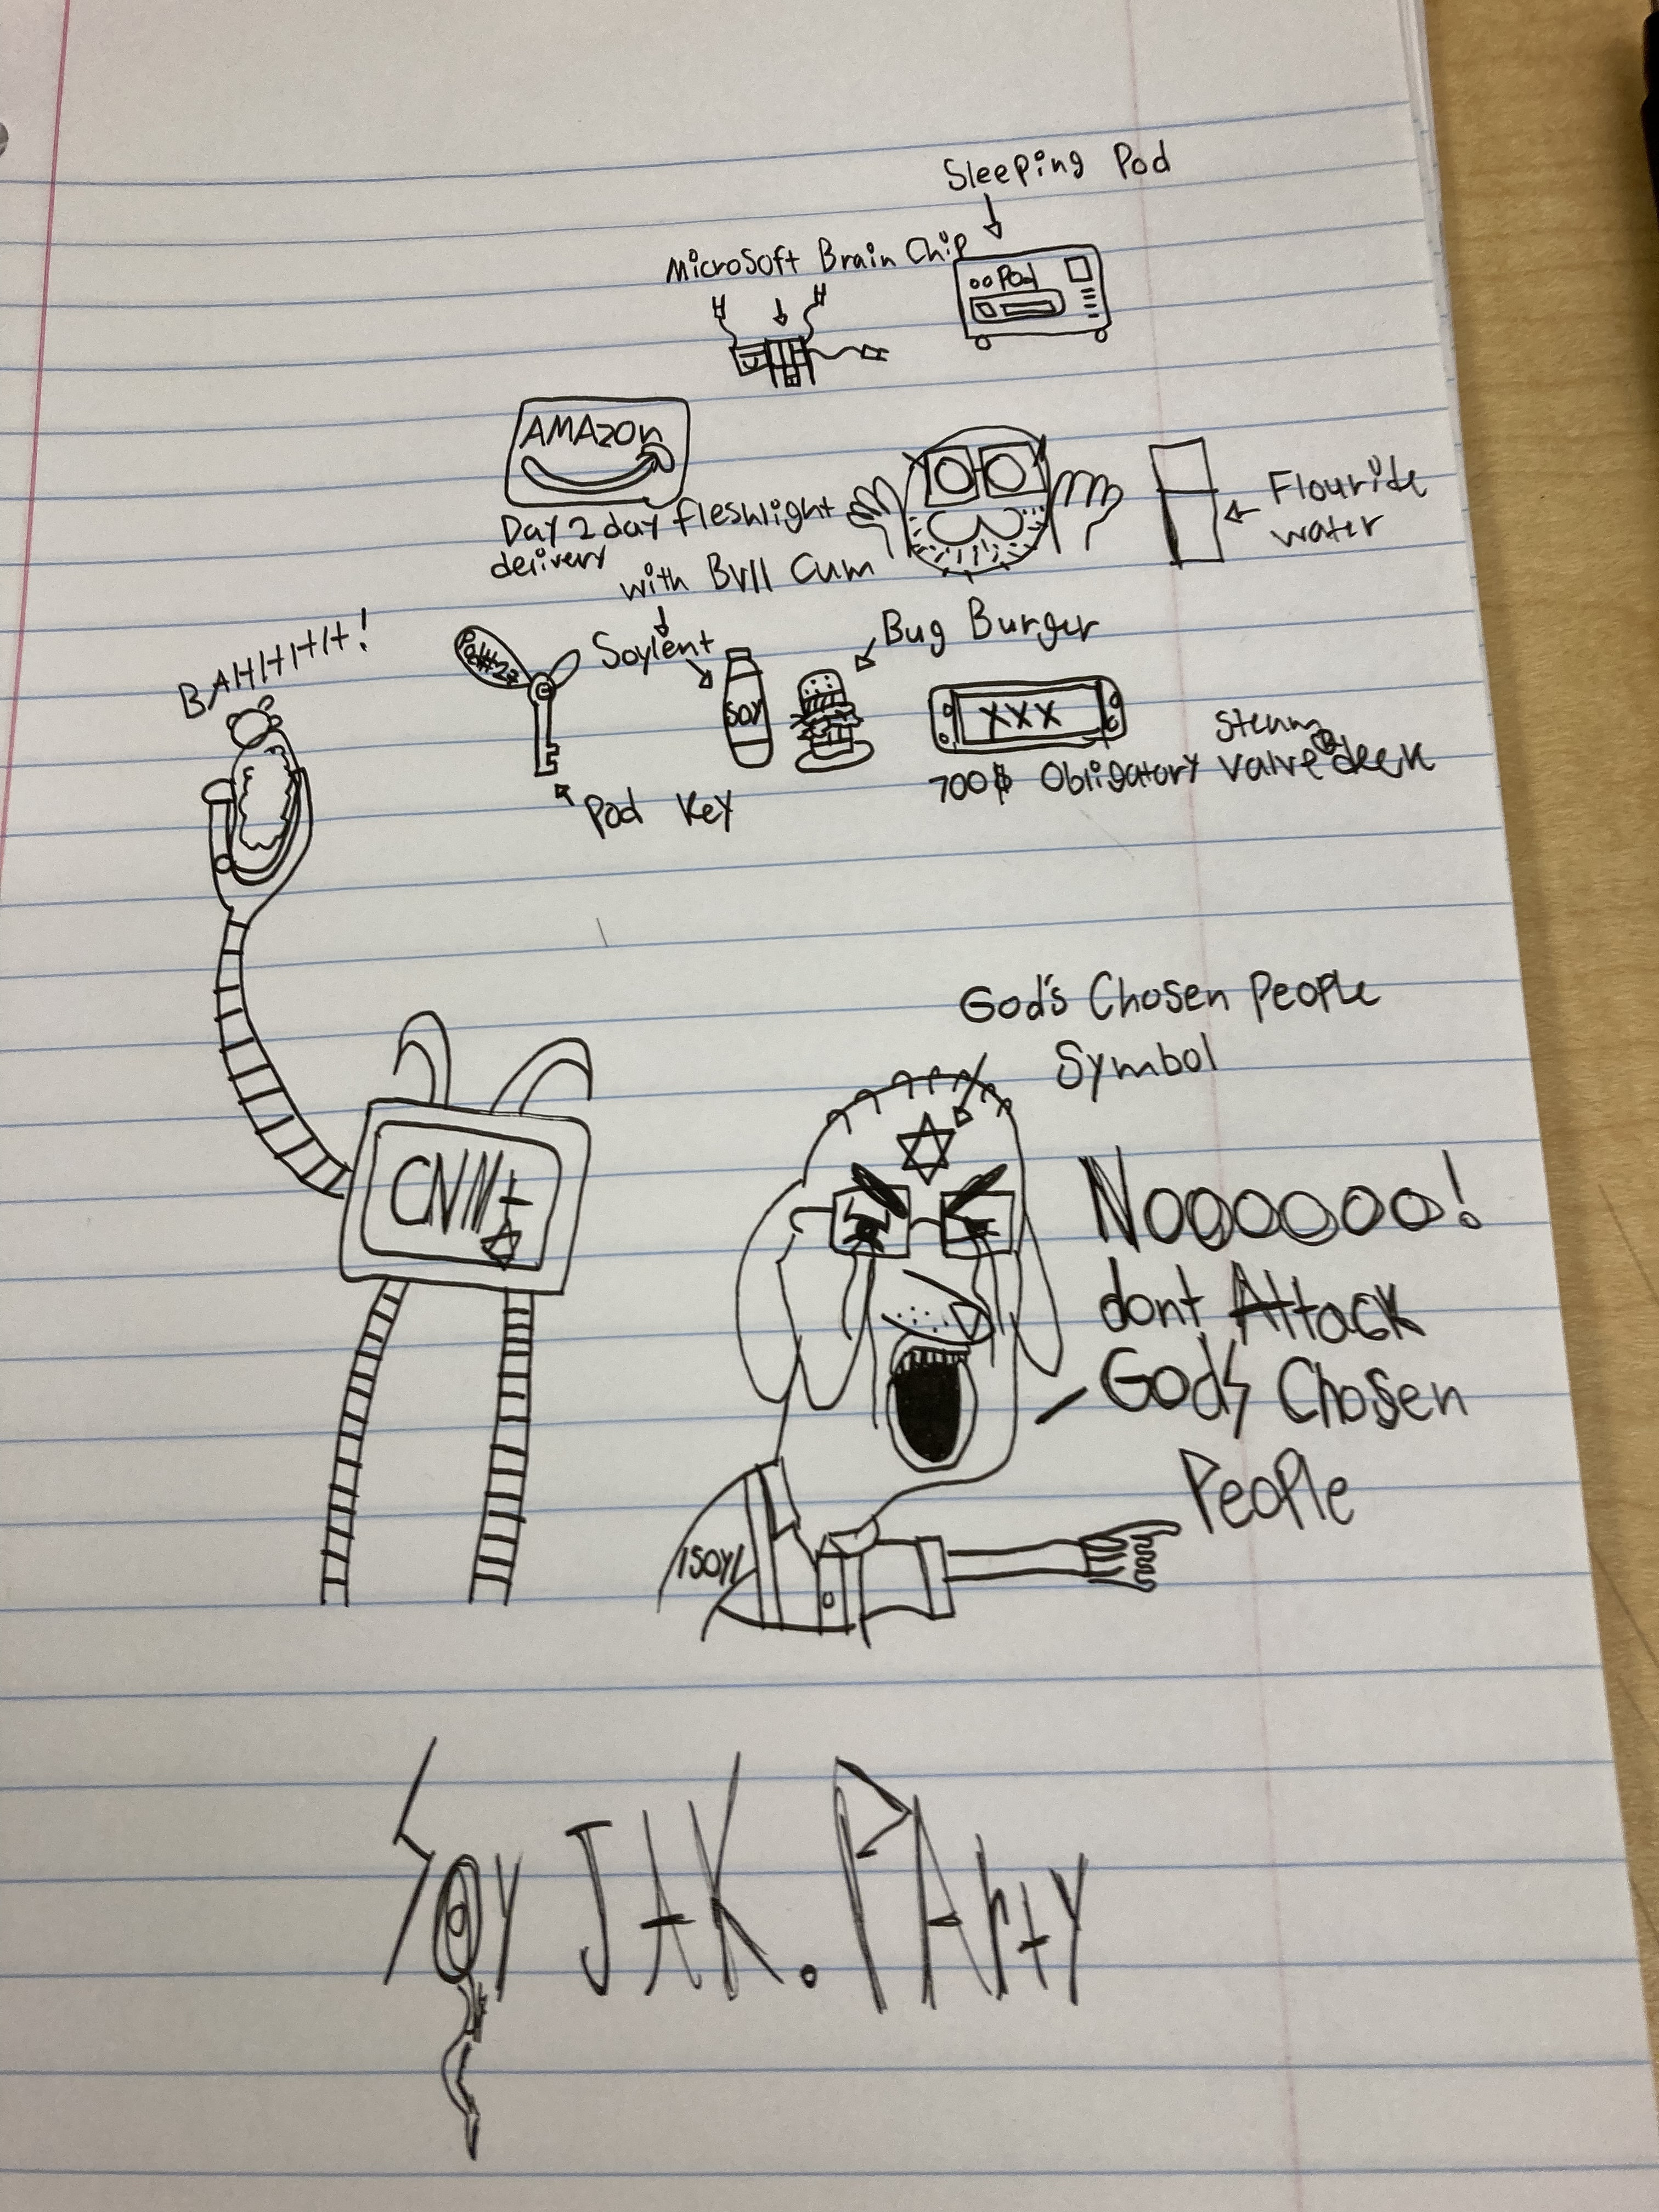 Sleeping Pod
Microsoft Brain Chip
Pod
AMAZon
Day 2 day fleshlight
delivery
with Bull Cum
Flouride
water
BAHHHH!
Soylent
Bug Burger
SOY
XXX
steam
700$ Obligatory valve deck
Pod Key
God's Chosen People
Symbol
CNN
Nooooooo!
dont Attack
Gods Chosen
People
SOY
SoyJAK.PArty